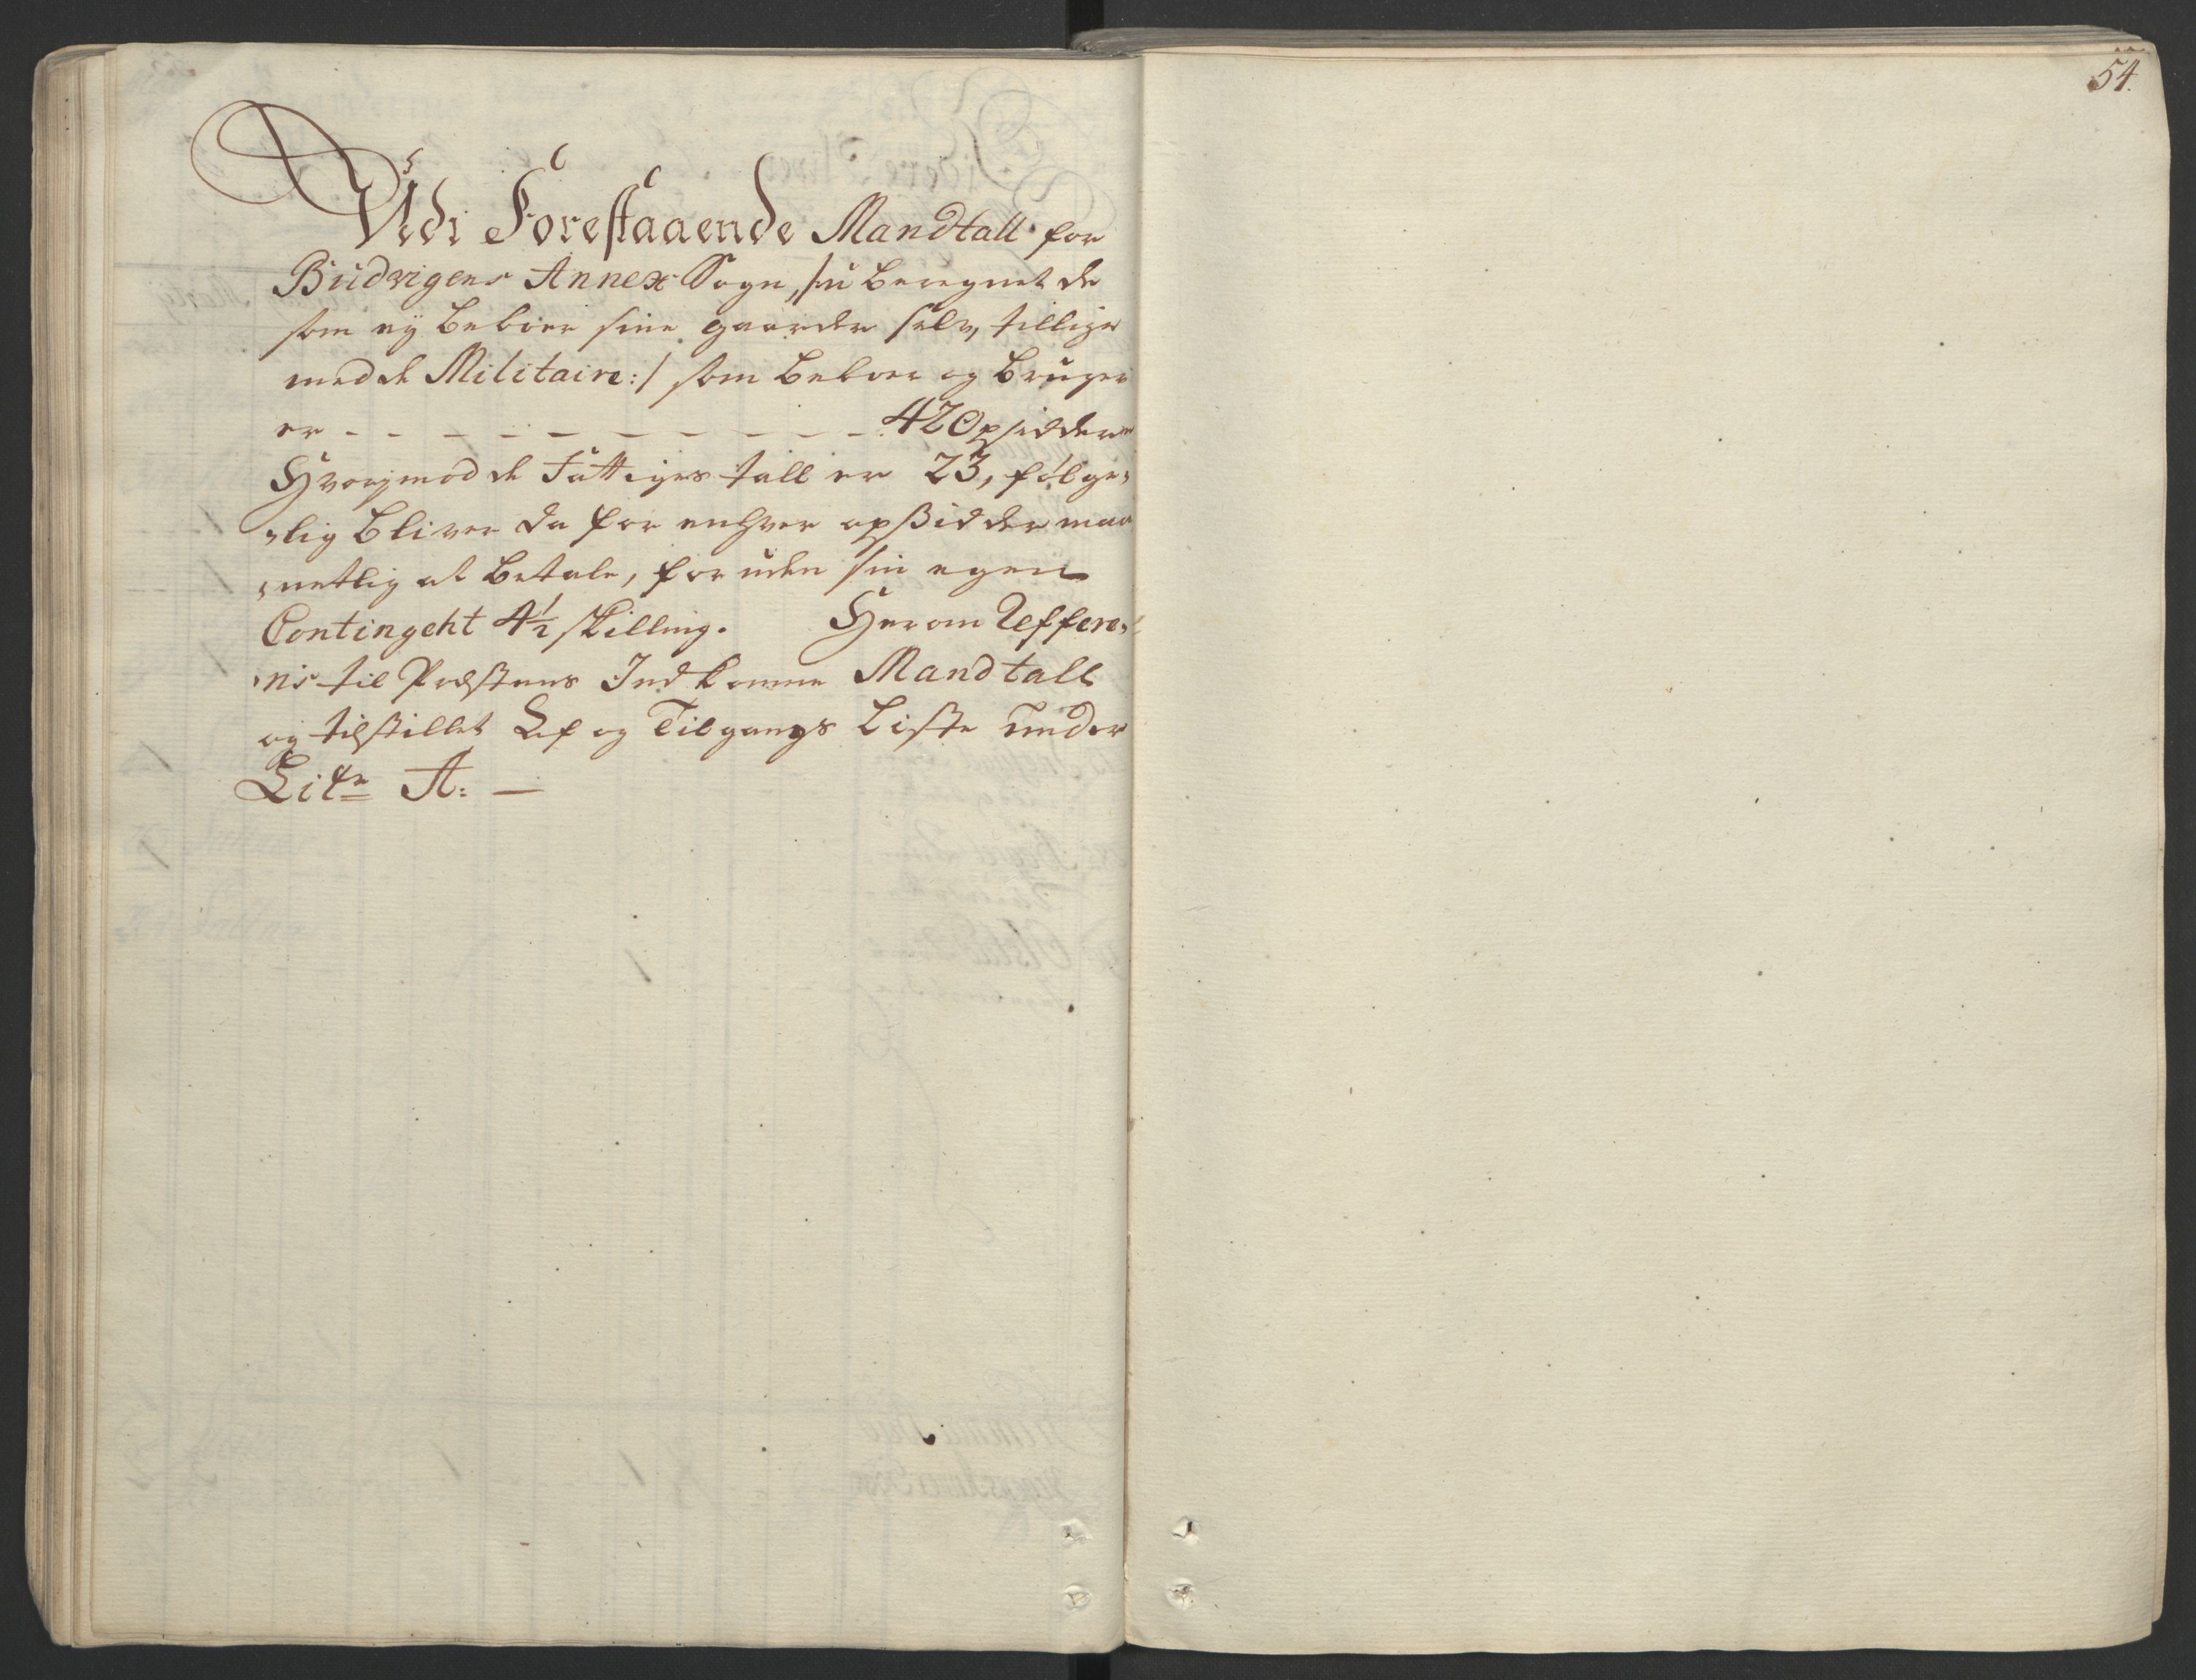 54.
Udi Forestaaende Mandtall for
Budvigens Annex Sogn, /:u beregnet de
som ey beboer sine gaarder selv, tillige
med de Militaire:/ som beboer og bruger
er - - - - - - - - - - 42 Opsiddere
Hvorimod de Fattiges tall er 23, følge-
-lig bliver da for enhver opsidder maa-
-netlig at betale, for uden sin egen
Contingent 4½ skilling. Herom Reffere-
-ris til Præstens Indkomne Mandtall
og tilstillet Af og Tilgangs Liste under
Litr A: —